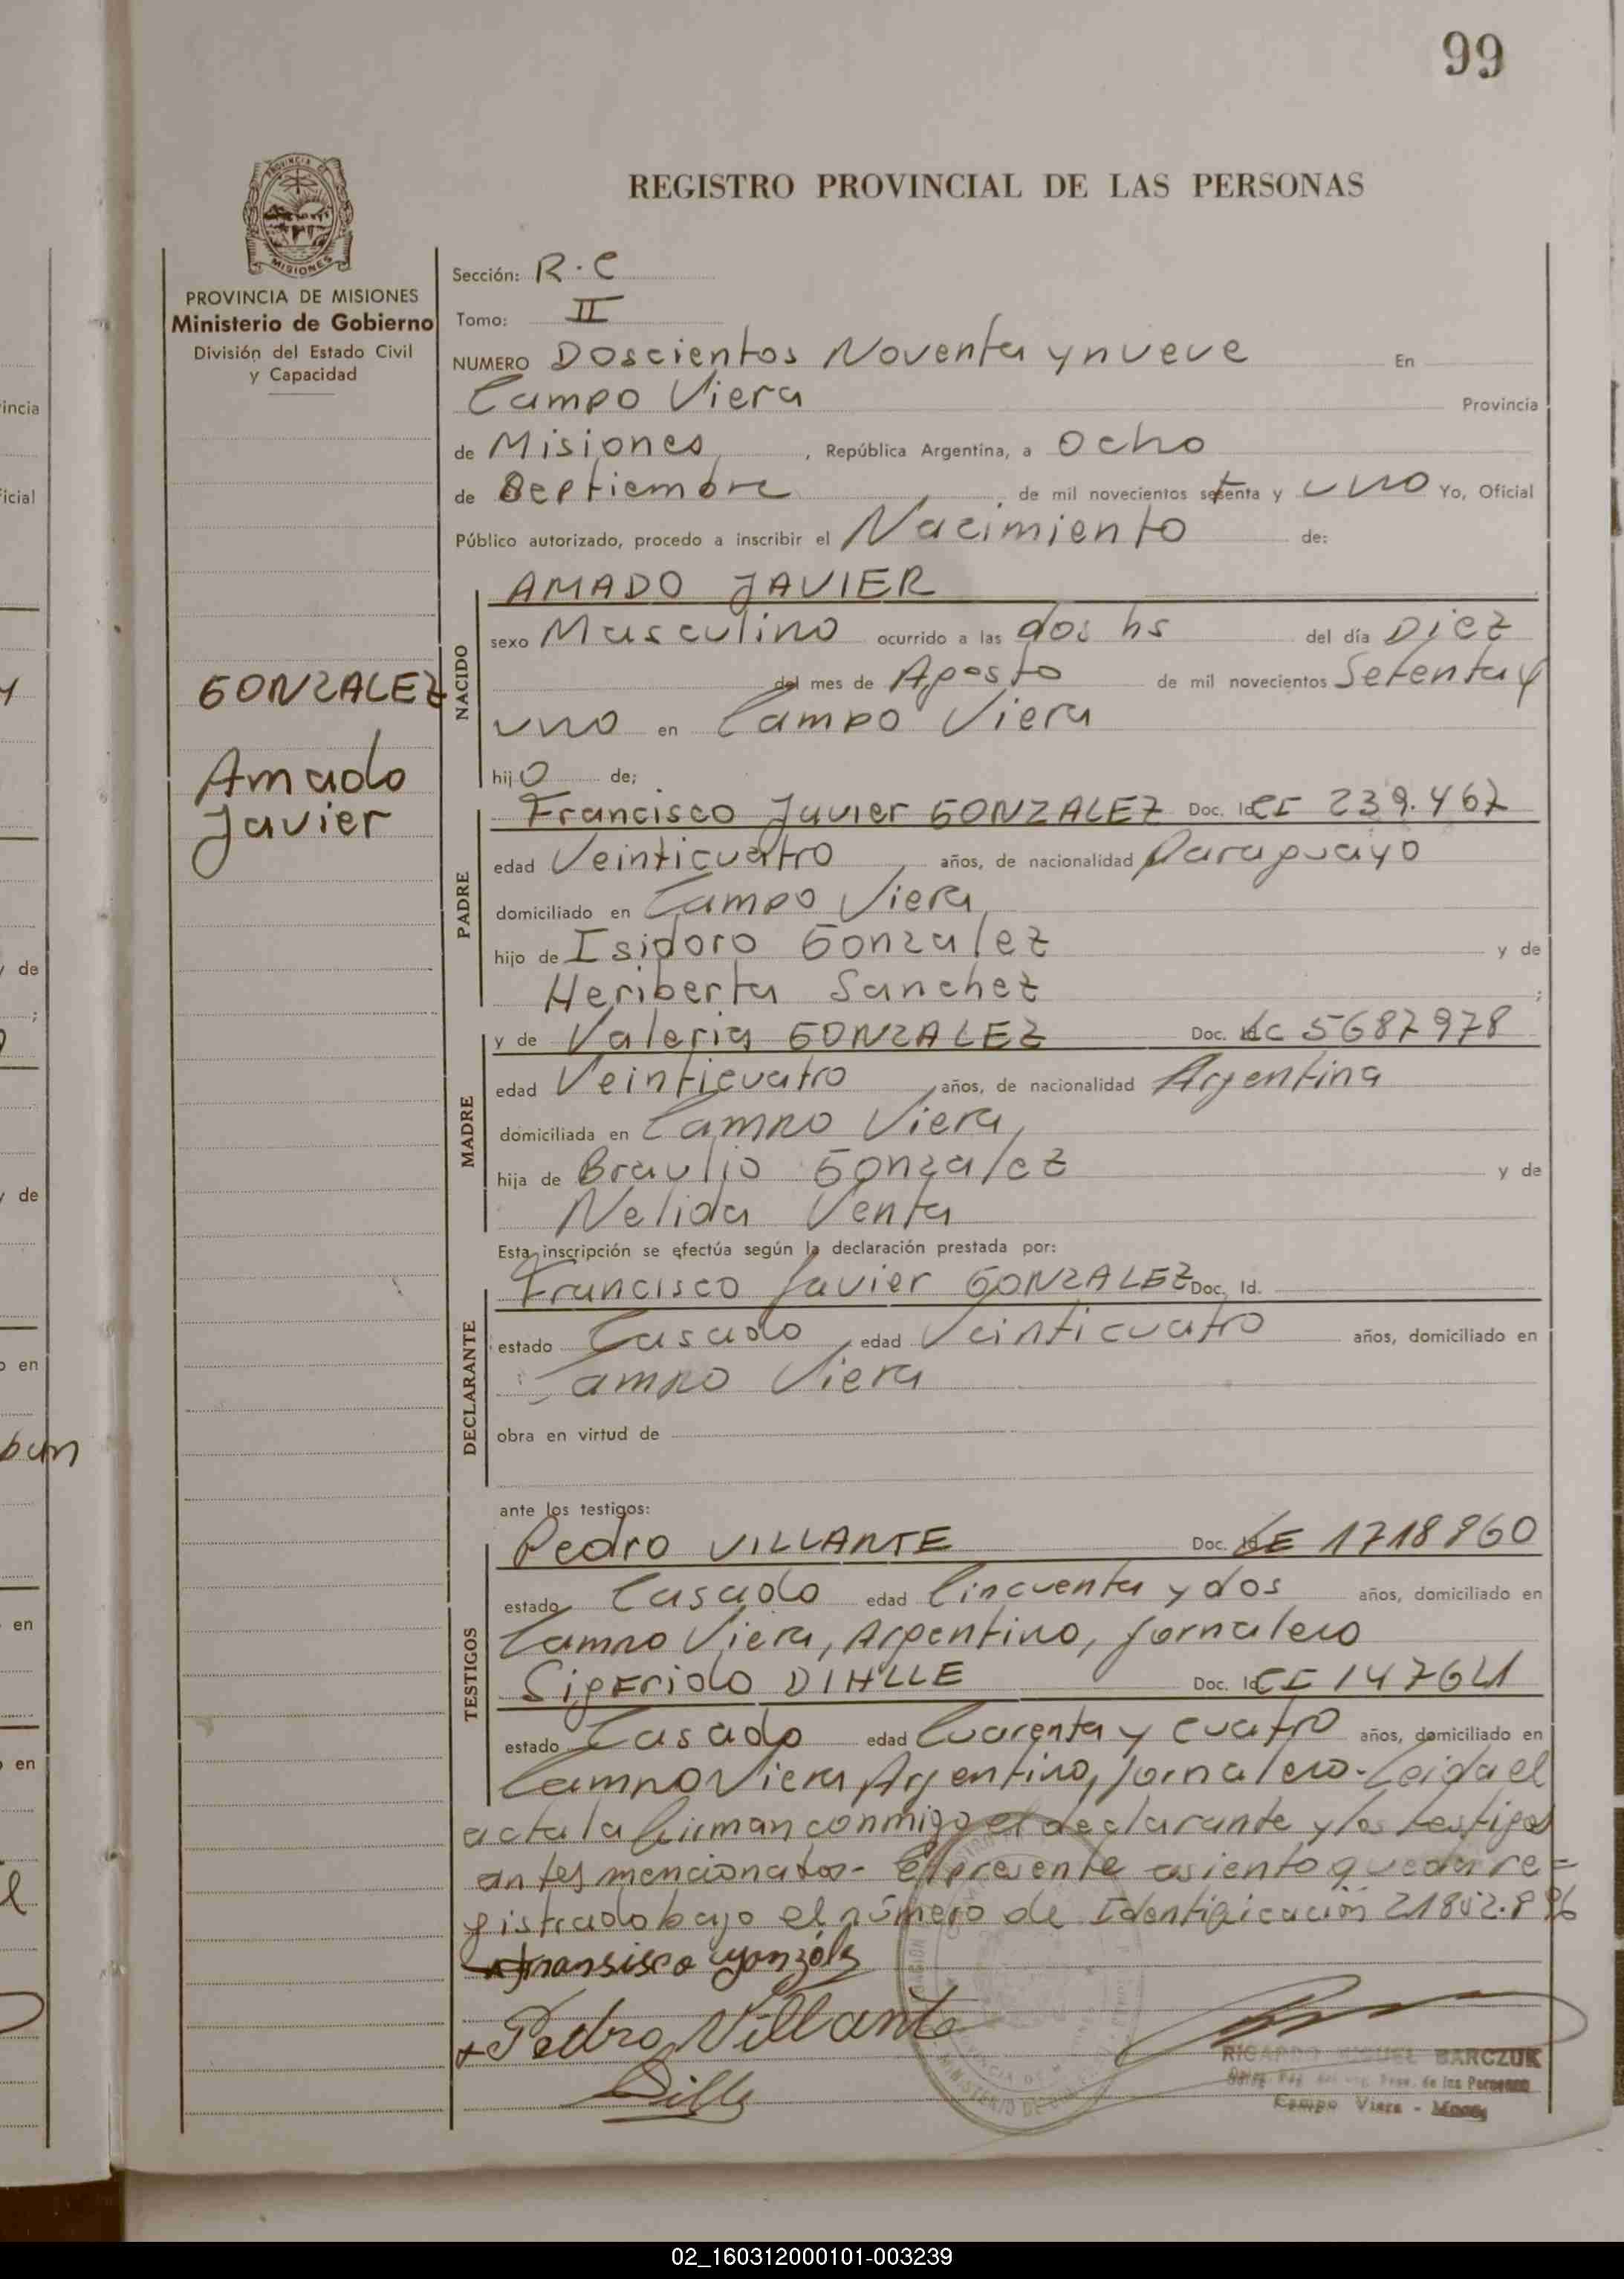 99
REGISTRO PROVINCIAL DE LAS PERSONAS
PROVINCIA
MISIONES
PROVINCIA DE MISIONES
Ministerio de Gobierno
División del Estado Civil
y Capacidad
GONZALEZ
Amado
Javier
Sección: R.C
Tomo: II
NUMERO Doscientos Noventa y nueve En
Campo Viera Provincia
de Misiones, República Argentina, a Ocho
de Septiembre, de mil novecientos setenta y uno Yo, Oficial
Público autorizado, procedo a inscribir el Nacimiento de:
NACIDO
AMADO JAVIER
sexo Masculino ocurrido a las dos hs del día Diez
del mes de Agosto de mil novecientos Setenta y
uno en Campo Viera
hijo de;
PADRE
Francisco Javier GONZALEZ Doc. Id. CI 239.467
edad Veinticuatro, años, de nacionalidad Paraguayo
domiciliado en Campo Viera,
hijo de Isidoro Gonzalez y de
Heriberta Sanchez ;
MADRE
y de Valeria GONZALEZ Doc. LC 5687978
edad Veinticuatro, años, de nacionalidad Argentina
domiciliada en Campo Viera,
hija de Braulio Gonzalez y de
Nelida Venta
Esta inscripción se efectúa según la declaración prestada por:
DECLARANTE
Francisco Javier GONZALEZ Doc. Id.
estado Casado, edad Veinticuatro años, domiciliado en
Campo Viera
obra en virtud de
ante los testigos:
TESTIGOS
Pedro VILLANTE Doc. LE 1718960
estado Casado edad Cincuenta y dos años, domiciliado en
Campo Viera, Argentino, jornalero
Sigfrido DIHLLE Doc. Id. CI 147621
estado Casado edad Cuarenta y cuatro años, domiciliado en
Campo Viera, Argentino, jornalero. Leida el
acta la firman conmigo el declarante y los testigos
antes mencionados- El presente asiento queda re=
gistrado bajo el número de Identificación
Fransisco Gonzalz
Pedro Villante
Dille
RICARDO MIGUEL BARCZUK
de las Personas
Campo Viera - Mnes.
MINISTERIO DE
incia
icial
y
de
;
de
en
en
en
02_160312000101-003239